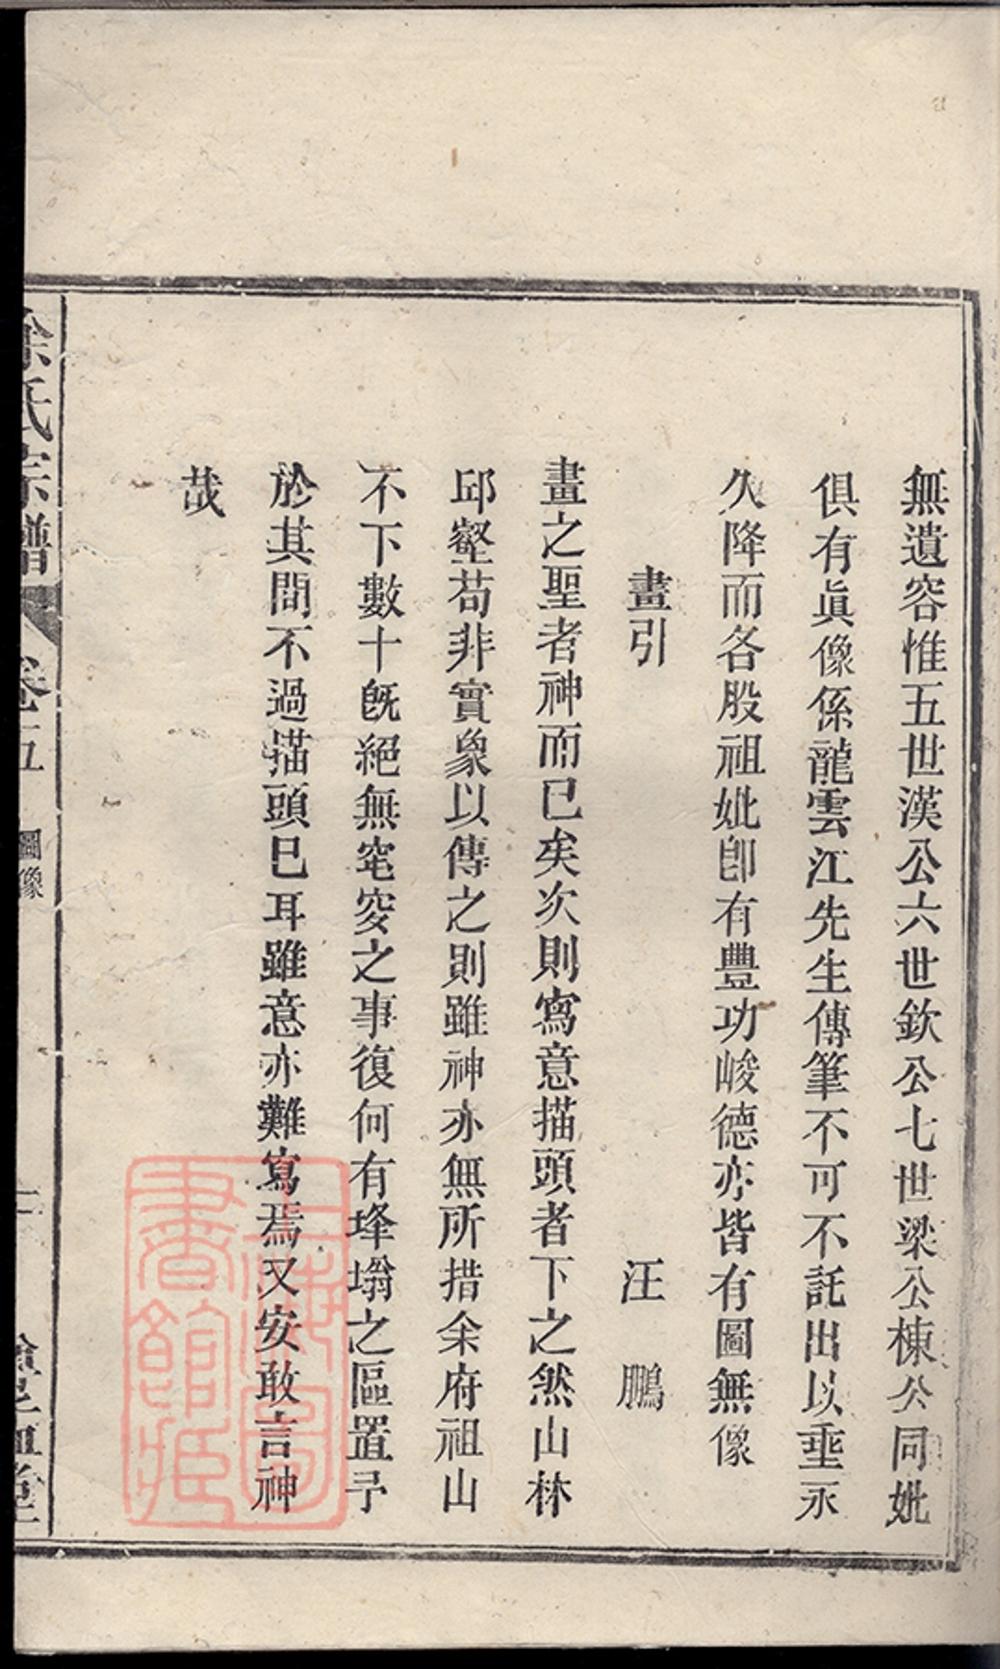 無遺容惟五世漢公六世欽公七世梁公棟公同妣
俱有眞像係龍雲江先生傳筆不可不託出以垂永
久降而各股祖妣卽有豐功峻德亦皆有圖無像
畫引
汪鵬
畫之聖者神而已矣次則寫意描頭者下之然山林
邱壑苟非實象以傳之則雖神亦無所措余府祖山
不下數十旣絕無窀穸之事復何有塋塕之區置予
於其間不過描頭已耳雖意亦難寫焉又安敢言神
哉
余氏宗譜
卷五
圖像
上海圖書館藏